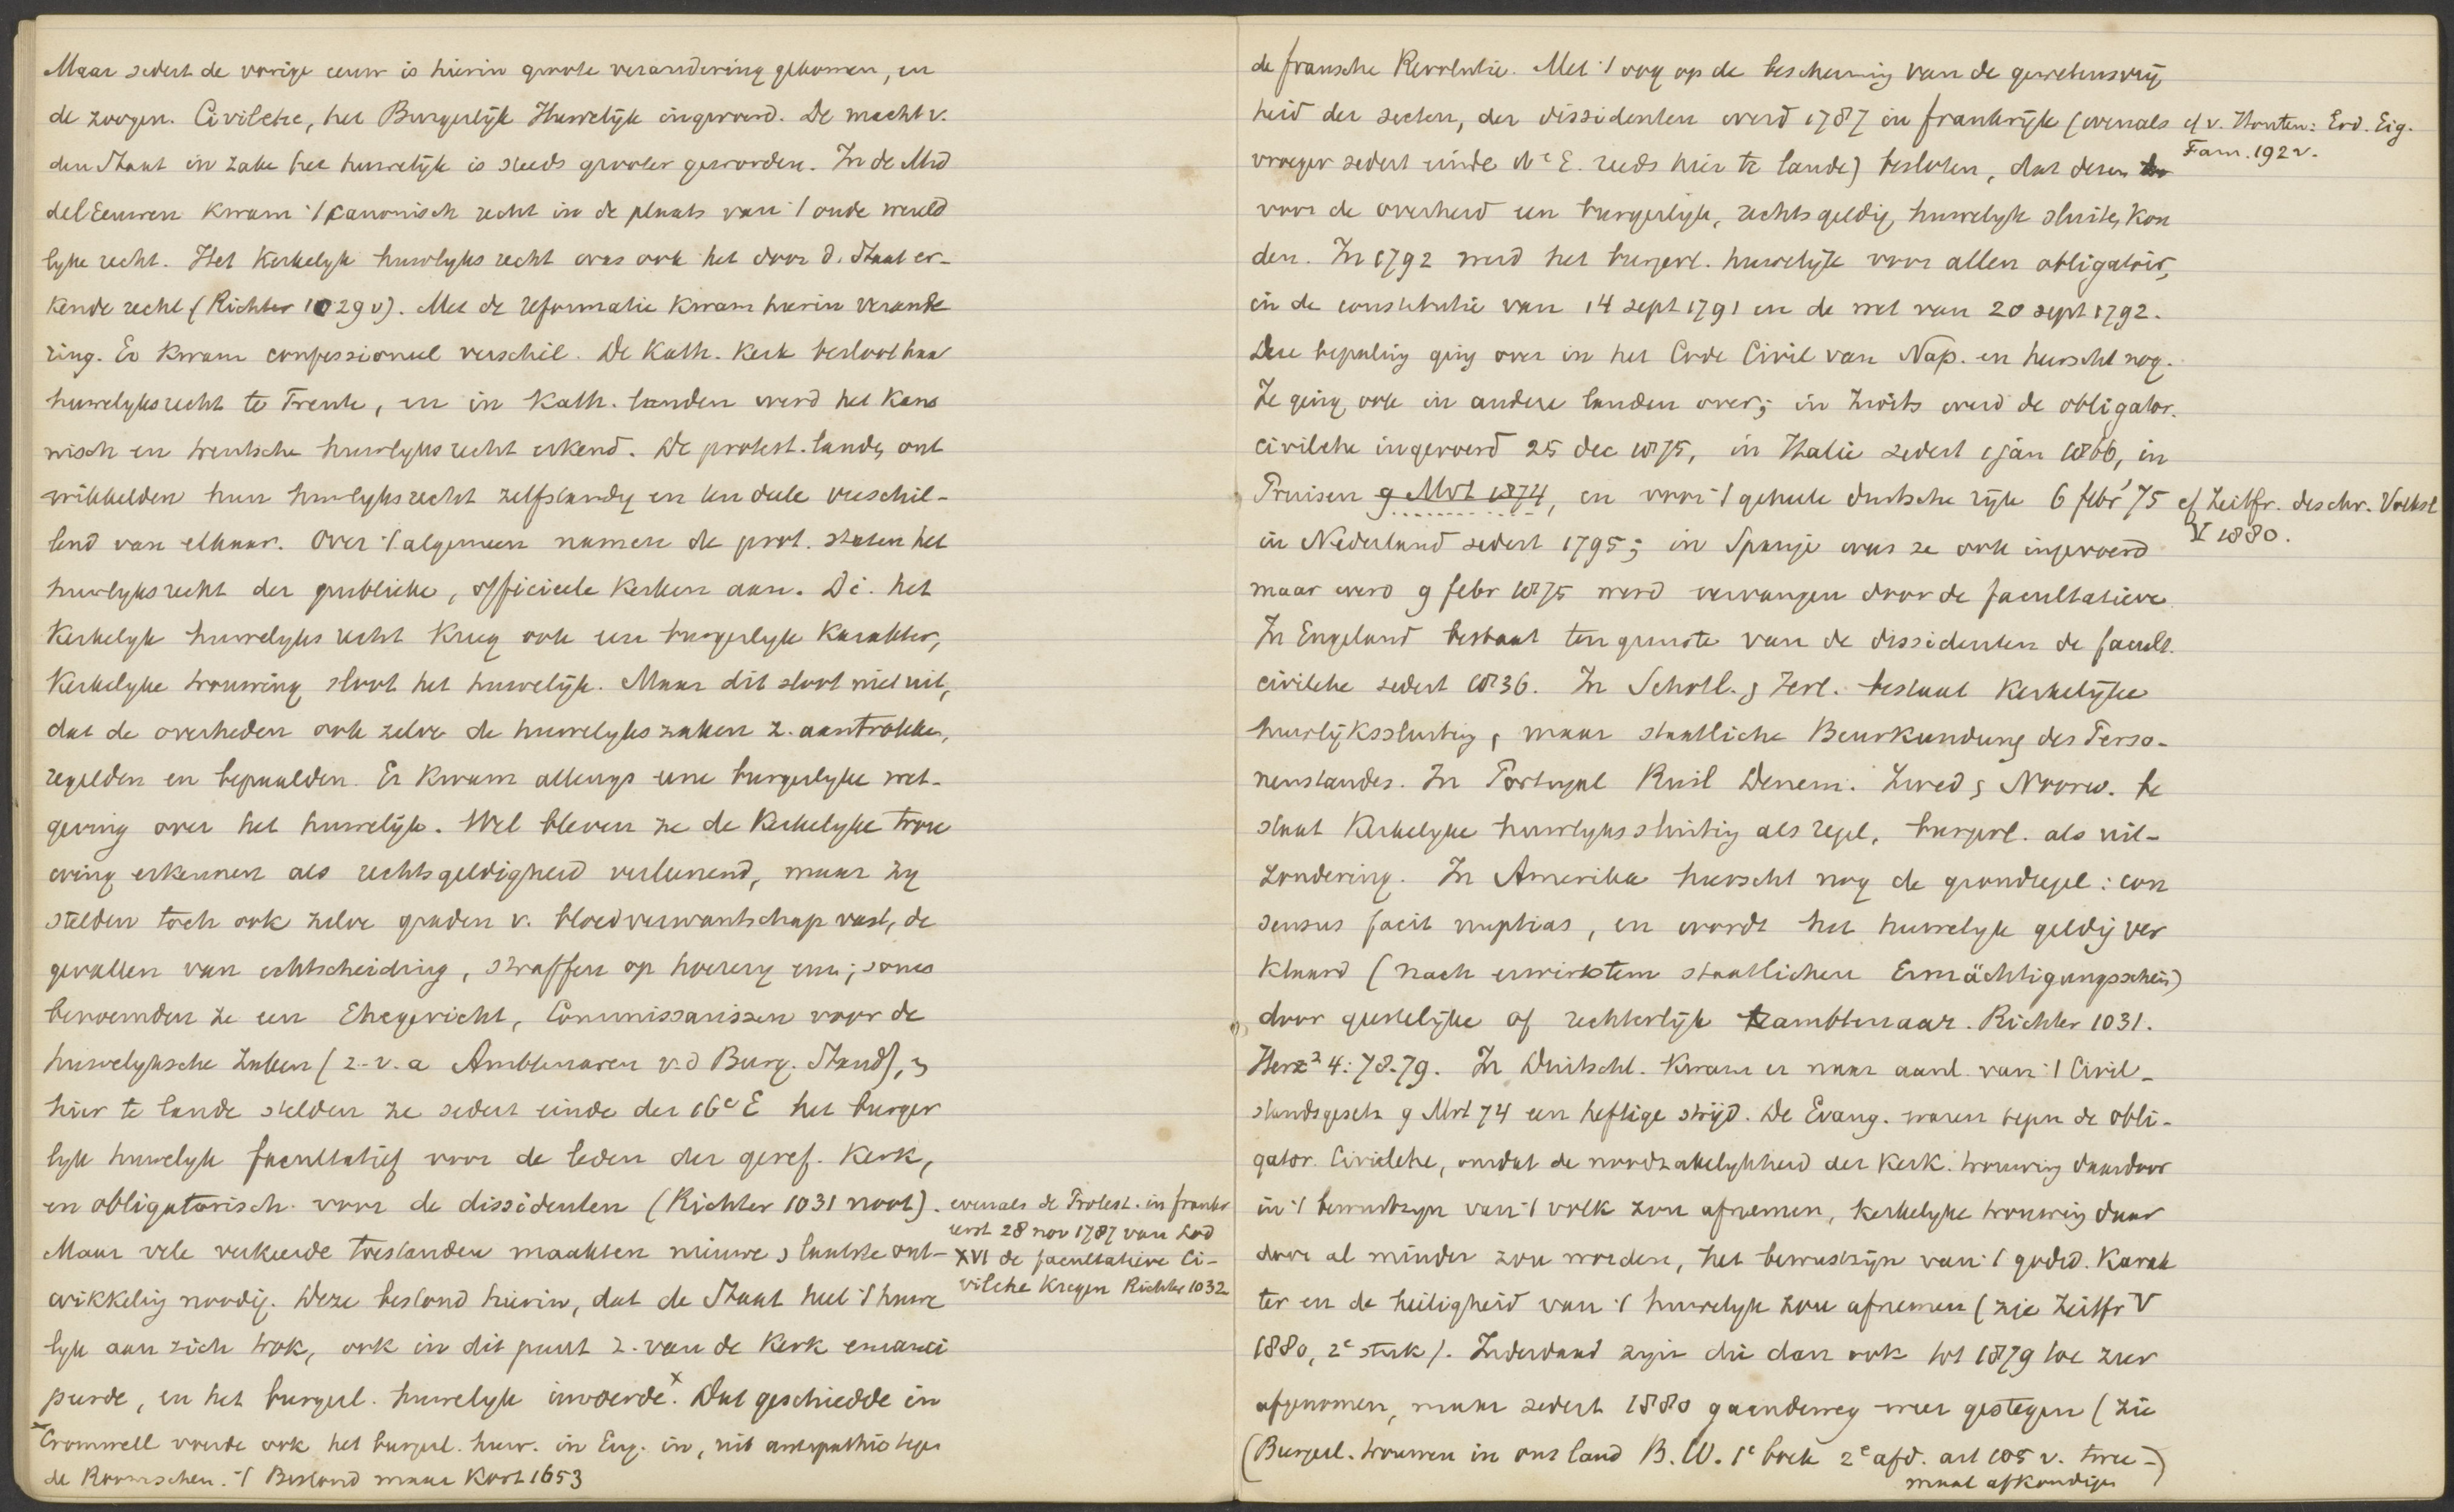 Maar sedert de vorige eeuw is hierin groote verandering gekomen, en
de zoogen. Civilehe, het Burgerlijk Huwelijk ingevoerd. De macht v.
den Staat in zake het huwelijk is steeds grooter geworden. In de Mid
deleeuwen kwam 't canonisch recht in de plaats van 't oude wereld
lyke recht. Het Kerkelyk huwlyks recht was ook het door d. Staat er-
kende recht (Richter 1029 v). Met de reformatie kwam hierin verande
ring. Er kwam confessioneel verschil. De Kath. Kerk besloot haar
huwelyksrecht te Trente, en in Kath. landen werd het Kano
nisch en trentsche huwlyks recht erkend. De protest. landen ont
wikkelden hun huwlyksrecht zelfstandig en ten deele verschil-
lend van elkaar. Over 't algemeen namen de prot. staten het
huwlyksrecht der publieke, officieele Kerken aan. D.i. het
Kerkelyk huwelyks recht kreeg ook een burgerlyk karakter,
Kerkelyke trouwing sloot het huwelijk. Maar dit sloot niet uit,
dat de overheden ook zelve de huwelyks zaken z. aantrokken,
regelden en bepaalden. Er kwam allengs eene burgerlyke wet-
geving over het huwelijk. Wel bleven ze de Kerkelyke trou
wing erkennen als rechtsgeldigheid verleenend, maar zy
stelden toch ook zelve graden v. bloedverwantschap vast, de
gevallen van echtscheiding, straffen op hoerery enz; soms
benoemden ze een Ehegericht, Commissarissen voor de
huwelyksche zaken (z.v.a Ambtenaren v.d Burg. Stand), &
hier te lande stelden ze sedert einde der 16e E het burger
lyk huwelyk facultatief voor de leden der geref. Kerk,
en obligatorisch voor de dissidenten (Richter 1031 noot). evenals de Protest. in Frankr
eerst 28 nov 1787 van Lod
XVI de facultatieve Ci-
vilehe kregen Richter 1032
Maar vele verkeerde toestanden maakten nieuwe staatste ont-
wikkeling noodig. Deze bestond hierin, dat de Staat heel 't huwe
lyk aan zich trok, ook in dit punt z. van de Kerk emanci
peerde, en het burgerl. huwelyk invoerde.x Dat geschiedde in
x Cromwell voerde ook het burgerl. huw. in Eng. in, uit antipathie tegen
de Roomschen. 't Bestond maar kort 1653
de fransche Revolutie. Met 't oog op de bescherming van de gewetensvrij
heid der secten, der dissidenten werd 1787 in frankrijk (evenals cf v. Houten: Erd. Eig.
Fam. 192 v.
vroeger sedert einde 16e E. reeds hier te lande) besloten, dat dezen
voor de overheid een burgerlijk, rechtsgeldig, huwelyk sluiten kon
den. In 1792 werd het burgerl. huwelijk voor allen obligatoir,
in de constitutie van 14 sept 1791 en de wet van 20 sept 1792.
Deze bepaling ging over in het Code Civil van Nap. en heerscht nog.
Ze ging ook in andere landen over; in Zwits werd de obligator.
civilehe ingevoerd 25 dec 1875, in Italie sedert 1 jan 1866, in
Pruisen 9 Mrt 1874, en voor 't geheele duitsche rijk 6 febr '75 cf Zeitfr. des chr. Volksl
V 1880.
in Nederland sedert 1795; in Spanje was ze ook ingevoerd
maar werd 9 febr 1875 werd vervangen door de facultatieve
In Engeland bestaat ten gunste van de dissidenten de facult.
civilehe sedert 1836. In Schotl. & Ierl. bestaat Kerkelijke
huwlijkssluiting, maar staatliche Beurkundung des Perso-
nenstandes. In Portugal Rusl Denem. Zwed & Noorw. be
staat Kerkelyke huwlyks sluiting als regel, burgerl. als uit-
zondering. In Amerika heerscht nog de grondregel: con
sensus facit nuptias, en wordt het huwelyk geldig ver
klaard (nach erwirktem staatlichen Ermächtigungsschein)
door geestelijke of rechterlijk ambtenaar. Richter 1031.
Herz² 4: 78.79. In Duitschl. kwam er naar aanl. van 't Civil-
standsgesetz 9 Mrt 74 een heftige strijd. De Evang. waren tegen de obli-
gator. Civilehe, omdat de noodzakelykheid der Kerk. trouwing daardoor
in 't bewustzyn van 't volk zou afnemen, kerkelyke trouwing daar
door al minder zou worden, het bewustzijn van 't godsd. karak
ter en de heiligheid van 't huwelyk zou afnemen (zie Zeitfr V
1880, 2e stuk). Inderdaad zyn die dan ook tot 1879 toe zeer
afgenomen, maar sedert 1880 gaandeweg weer gestegen (zie
(Burgerl. trouwen in ons land B.W. 1e boek 2e afd. art 105 v. twee-)
maal afkondigen